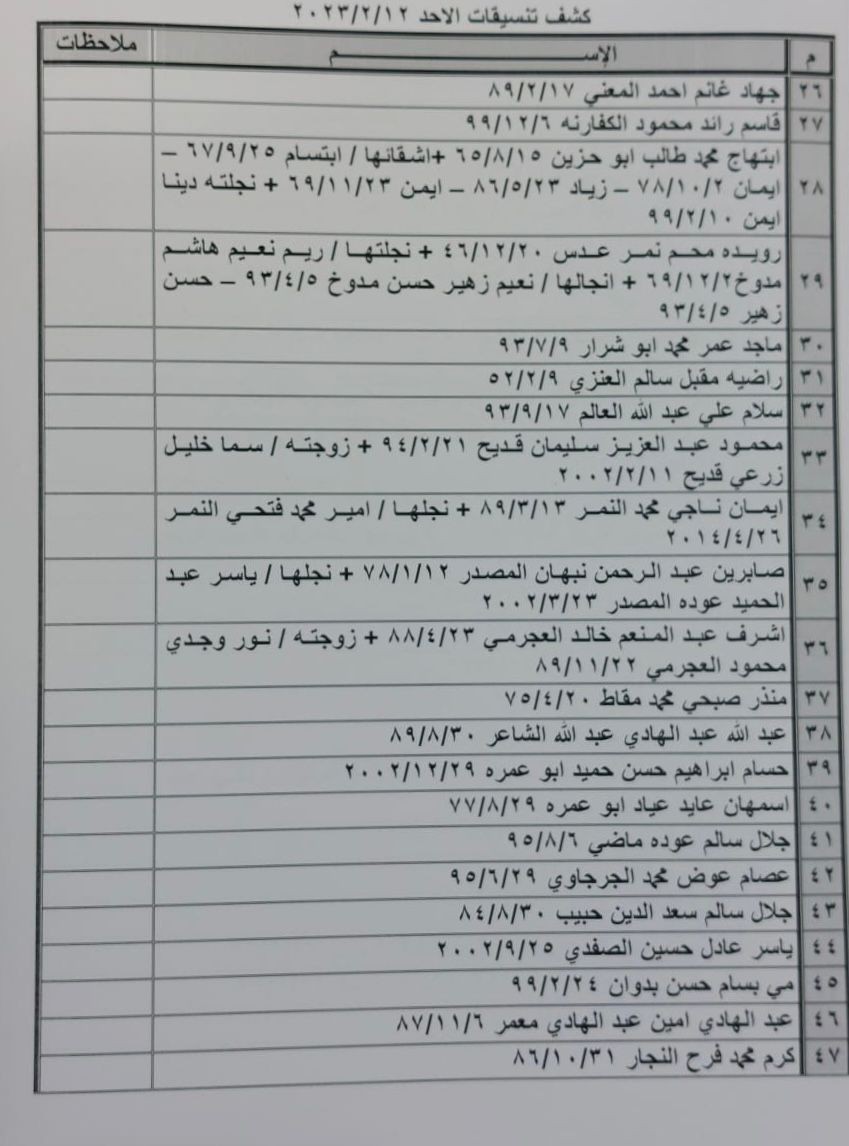 كشف تنسيقات الاحد ٢٠٢٣/٢/١٢
م الإســـــــم ملاحظات
٢٦ جهاد غانم احمد المعني ٨٩/٢/١٧
٢٧ قاسم رائد محمود الكفارنه ٩٩/١٢/٦
ابتهاج محمد طالب ابو حزين ٦٥/٨/١٥ +اشقائها / ابتسام ٦٧/٩/٢٥ –
٢٨ ايمان ٧٨/١٠/٢ – زياد ٨٦/٥/٢٣ – ايمن ٦٩/١١/٢٣ + نجلته دينا
ايمن ٩٩/٢/١٠
رويده محم نمر عدس ٤٦/١٢/٢٠ + نجلتها / ريم نعيم هاشم
٢٩ مدوخ٦٩/١٢/٢ + انجالها / نعيم زهير حسن مدوخ ٩٣/٤/٥ – حسن
زهير ٩٣/٤/٥
٣٠ ماجد عمر محمد ابو شرار ٩٣/٧/٩
٣١ راضيه مقبل سالم العنزي ٥٢/٢/٩
٣٢ سلام علي عبد الله العالم ٩٣/٩/١٧
٣٣ محمود عبد العزيز سليمان قديح ٩٤/٢/٢١ + زوجته / سما خليل
زرعي قديح ٢٠٠٢/٢/١١
٣٤ ايمان ناجي محمد النمر ٨٩/٣/١٣ + نجلها / امير محمد فتحي النمر
٢٠١٤/٤/٢٦
٣٥ صابرين عبد الرحمن نبهان المصدر ٧٨/١/١٢ + نجلها / ياسر عبد
الحميد عوده المصدر ٢٠٠٢/٣/٢٣
٣٦ اشرف عبد المنعم خالد العجرمي ٨٨/٤/٢٣ + زوجته / نور وجدي
محمود العجرمي ٨٩/١١/٢٢
٣٧ منذر صبحي محمد مقاط ٧٥/٤/٢٠
٣٨ عبد الله عبد الهادي عبد الله الشاعر ٨٩/٨/٣٠
٣٩ حسام ابراهيم حسن حميد ابو عمره ٢٠٠٢/١٢/٢٩
٤٠ اسمهان عايد عياد ابو عمره ٧٧/٨/٢٩
٤١ جلال سالم عوده ماضي ٩٥/٨/٦
٤٢ عصام عوض محمد الجرجاوي ٩٥/٦/٢٩
٤٣ جلال سالم سعد الدين حبيب ٨٤/٨/٣٠
٤٤ ياسر عادل حسين الصفدي ٢٠٠٢/٩/٢٥
٤٥ مي بسام حسن بدوان ٩٩/٢/٢٤
٤٦ عبد الهادي امين عبد الهادي معمر ٨٧/١١/٦
٤٧ كرم محمد فرح النجار ٨٦/١٠/٣١